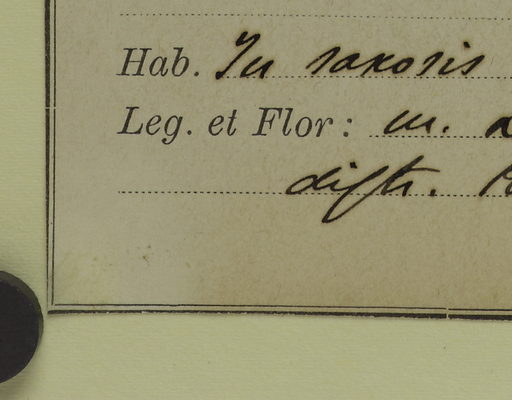 Hab. In saxosis
Leg. et Flor: m.
distr.